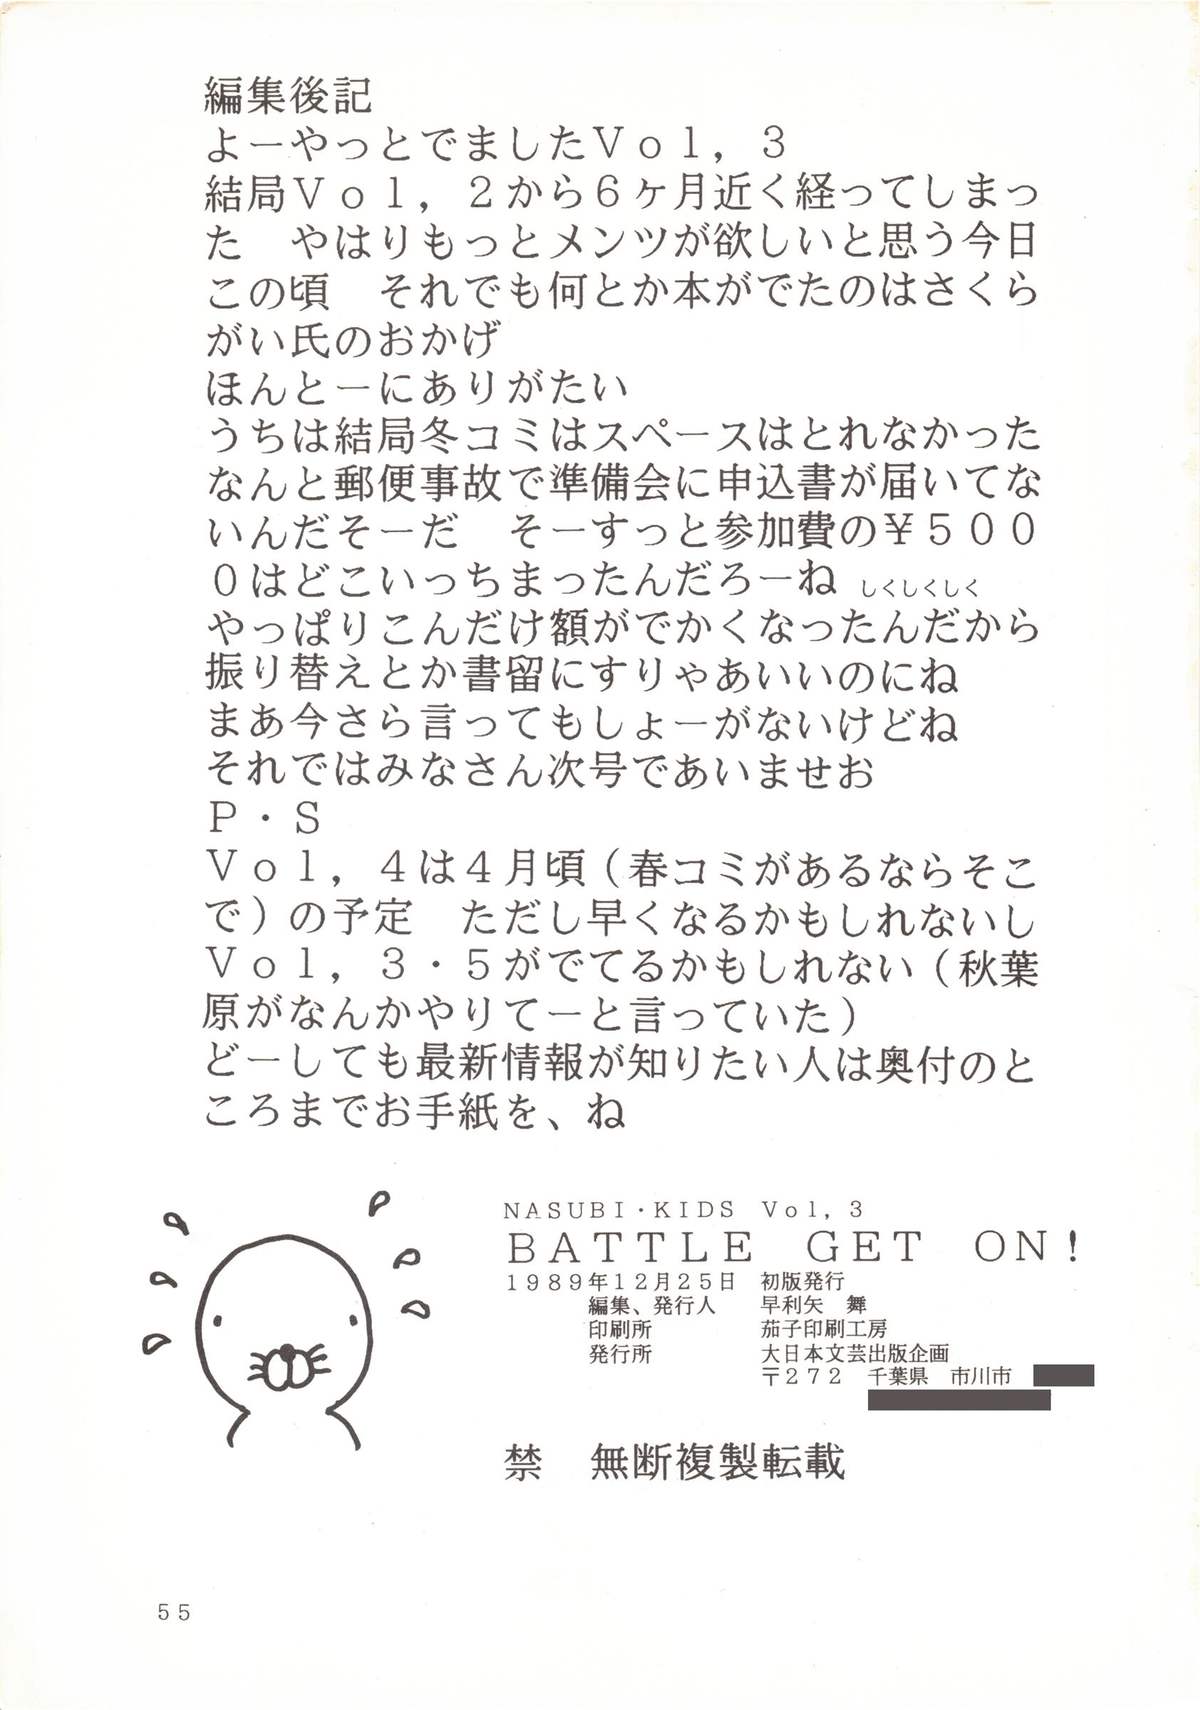 編集後記
よーやっとでましたＶｏｌ，３
結局Ｖｏｌ，２から６ヶ月近く経ってしまっ
た　やはりもっとメンツが欲しいと思う今日
この頃　それでも何とか本がでたのはさくら
がい氏のおかげ
ほんとーにありがたい
うちは結局冬コミはスペースはとれなかった
なんと郵便事故で準備会に申込書が届いてな
いんだそーだ　そーすっと参加費の￥５００
０はどこいっちまったんだろーね しくしくしく
やっぱりこんだけ額がでかくなったんだから
振り替えとか書留にすりゃあいいのにね
まあ今さら言ってもしょーがないけどね
それではみなさん次号であいませお
Ｐ・Ｓ
Ｖｏｌ，４は４月頃（春コミがあるならそこ
で）の予定　ただし早くなるかもしれないし
Ｖｏｌ，３・５がでてるかもしれない（秋葉
原がなんかやりてーと言っていた）
どーしても最新情報が知りたい人は奥付のと
ころまでお手紙を、ね
ＮＡＳＵＢＩ・ＫＩＤＳ　Ｖｏｌ，３
ＢＡＴＴＬＥ　ＧＥＴ　ＯＮ！
１９８９年１２月２５日　初版発行
編集、発行人　早利矢　舞
印刷所　茄子印刷工房
発行所　大日本文芸出版企画
〒２７２　千葉県　市川市
禁　無断複製転載
５５